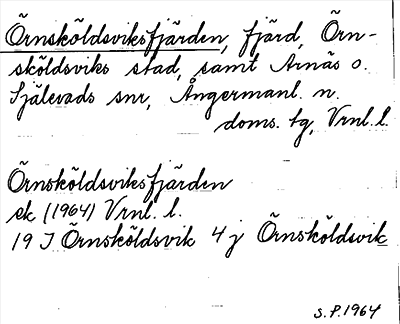 Örnsköldsviksfjärden, fjärd, Örn-
sköldsviks stad, samt Arnäs o.
Själevads snr, Ångermanl. n.
doms. tg, Vrnl. l.
Örnsköldsviksfjärden
ek (1964) Vrnl. l.
19 J Örnsköldsvik 4 j Örnsköldsvik
S.P. 1964